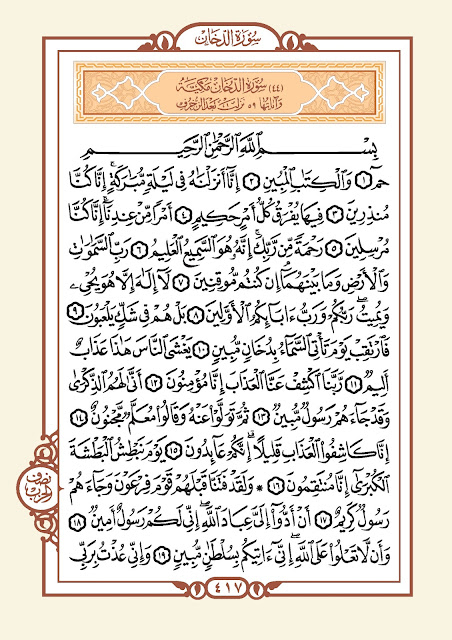 سُورَةُ الدُّخَانِ
(٤٤) سُورَةُ الدُّخَانِ مَكِّيَّةٌ
وَآيَاتُهَا ٥٩ نَزَلَتْ بَعْدَ الزُّخْرُفِ
بِسْمِ ٱللَّهِ ٱلرَّحْمَٰنِ ٱلرَّحِيمِ
حمٓ ١ وَٱلْكِتَٰبِ ٱلْمُبِينِ ٢ إِنَّآ أَنزَلْنَٰهُ فِى لَيْلَةٍ مُّبَٰرَكَةٍ ۚ إِنَّا كُنَّا
مُنذِرِينَ ٣ فِيهَا يُفْرَقُ كُلُّ أَمْرٍ حَكِيمٍ ٤ أَمْرًا مِّنْ عِندِنَآ ۚ إِنَّا كُنَّا
مُرْسِلِينَ ٥ رَحْمَةً مِّن رَّبِّكَ ۚ إِنَّهُۥ هُوَ ٱلسَّمِيعُ ٱلْعَلِيمُ ٦ رَبِّ ٱلسَّمَٰوَٰتِ
وَٱلْأَرْضِ وَمَا بَيْنَهُمَآ ۖ إِن كُنتُم مُّوقِنِينَ ٧ لَآ إِلَٰهَ إِلَّا هُوَ يُحْىِۦ
وَيُمِيتُ ۖ رَبُّكُمْ وَرَبُّ ءَابَآئِكُمُ ٱلْأَوَّلِينَ ٨ بَلْ هُمْ فِى شَكٍّ يَلْعَبُونَ ٩
فَٱرْتَقِبْ يَوْمَ تَأْتِى ٱلسَّمَآءُ بِدُخَانٍ مُّبِينٍ ١٠ يَغْشَى ٱلنَّاسَ ۖ هَٰذَا عَذَابٌ
أَلِيمٌ ١١ رَّبَّنَا ٱكْشِفْ عَنَّا ٱلْعَذَابَ إِنَّا مُؤْمِنُونَ ١٢ أَنَّىٰ لَهُمُ ٱلذِّكْرَىٰ
وَقَدْ جَآءَهُمْ رَسُولٌ مُّبِينٌ ١٣ ثُمَّ تَوَلَّوْا۟ عَنْهُ وَقَالُوا۟ مُعَلَّمٌ مَّجْنُونٌ ١٤
إِنَّا كَاشِفُوا۟ ٱلْعَذَابِ قَلِيلًا ۚ إِنَّكُمْ عَآئِدُونَ ١٥ يَوْمَ نَبْطِشُ ٱلْبَطْشَةَ
ٱلْكُبْرَىٰٓ إِنَّا مُنتَقِمُونَ ١٦ ۞ وَلَقَدْ فَتَنَّا قَبْلَهُمْ قَوْمَ فِرْعَوْنَ وَجَآءَهُمْ
نصف
الحزب
رَسُولٌ كَرِيمٌ ١٧ أَنْ أَدُّوٓا۟ إِلَىَّ عِبَادَ ٱللَّهِ ۖ إِنِّى لَكُمْ رَسُولٌ أَمِينٌ ١٨
وَأَن لَّا تَعْلُوا۟ عَلَى ٱللَّهِ ۖ إِنِّىٓ ءَاتِيكُم بِسُلْطَٰنٍ مُّبِينٍ ١٩ وَإِنِّى عُذْتُ بِرَبِّى
٤١٧